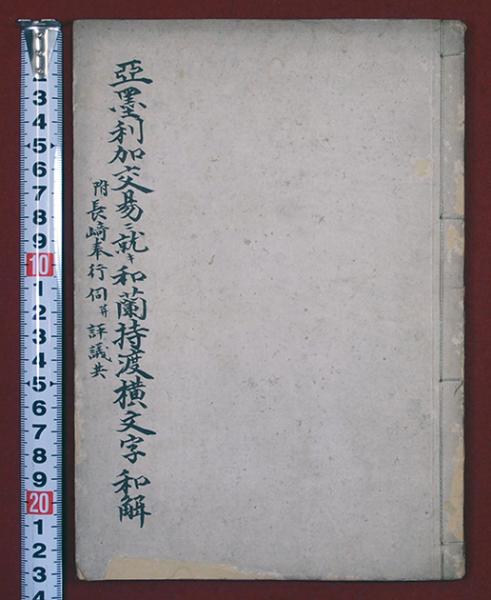 亞墨利加交易ニ就キ和蘭持渡横文字和解
附長﨑奉行伺并評議共
3
4
5
6
7
8
9
10
1
2
3
4
5
6
7
8
9
20
1
2
3
4